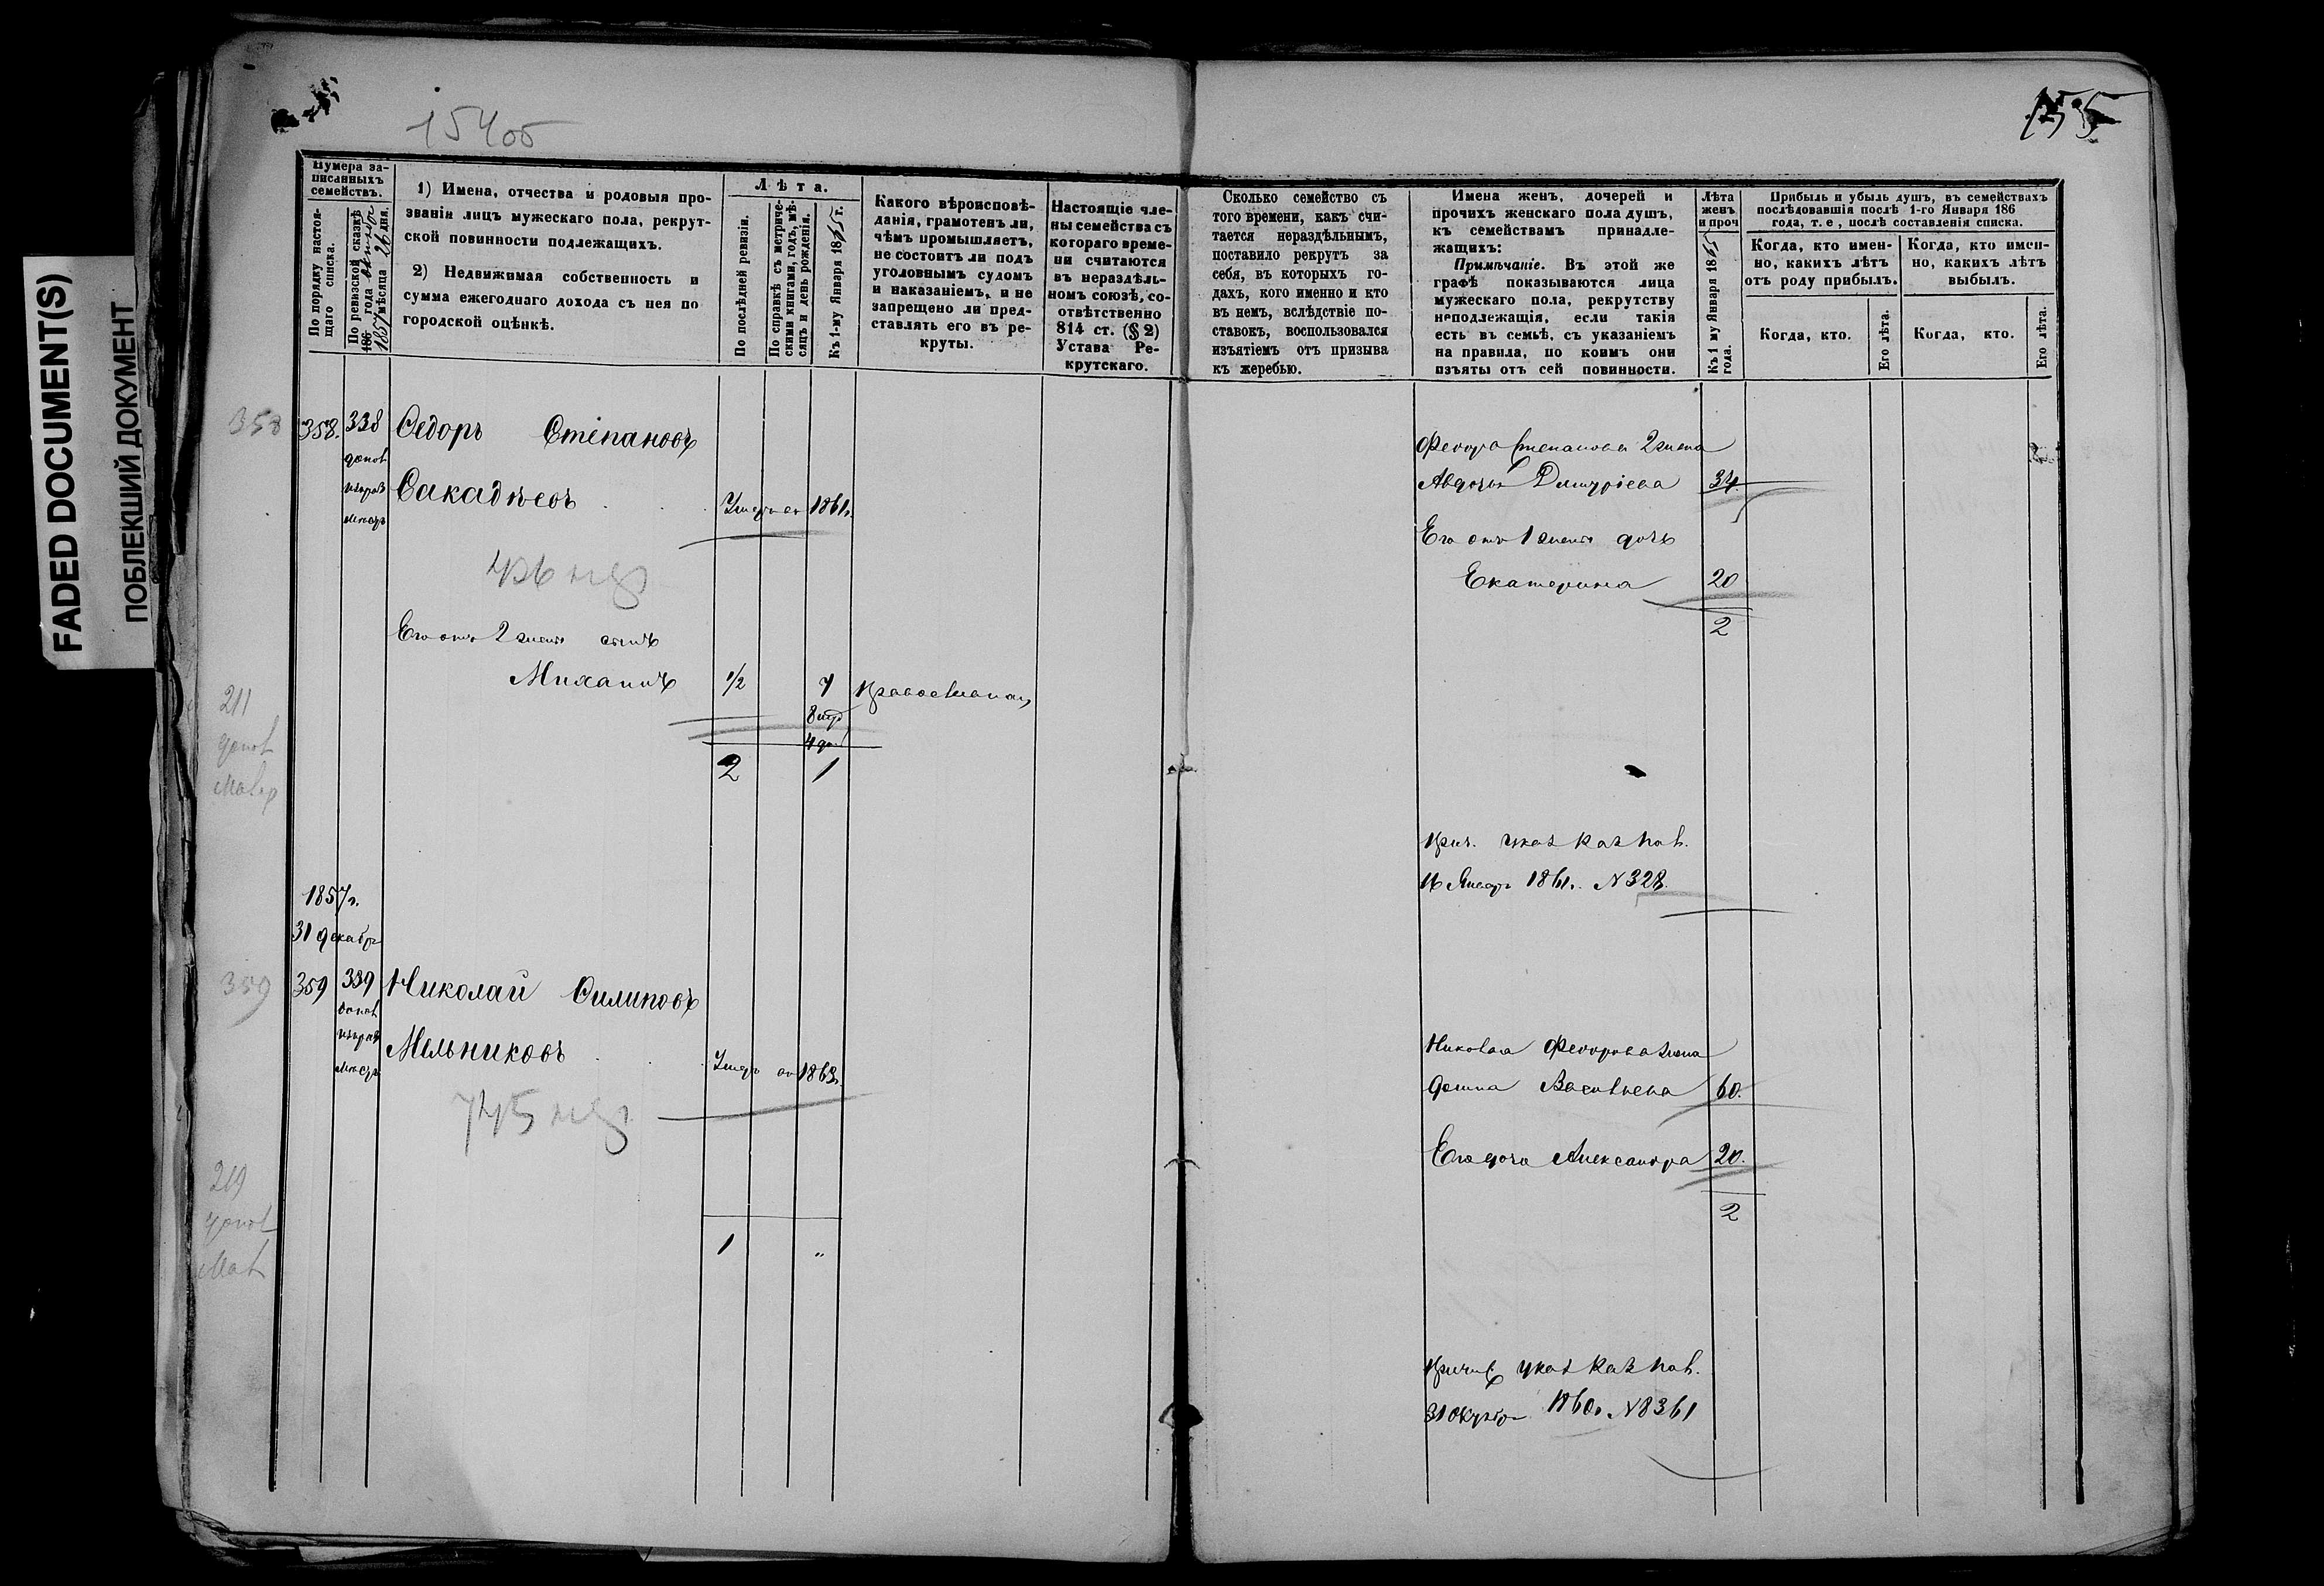 FADED DOCUMENT(S)
ПОБЛЕКШИЙ ДОКУМЕНТ
154об
155
Нумера за-
писанныхъ
семействъ.
По порядку настоя-
щаго списка.
По ревизской сказкѣ
186 года
1857 мѣсяца 26 дня.
1) Имена, отчества и родовыя про-
званія лицъ мужескаго пола, рекрут-
ской повинности подлежащихъ.
2) Недвижимая собственность и
сумма ежегоднаго дохода съ нея по
городской оцѣнкѣ.
Лѣта.
По послѣдней ревизіи.
По справкѣ съ метриче-
скими книгами, годъ, мѣ-
сяцъ и день рожденія.
Къ 1-му Января 1865 г.
Какого вѣроисповѣ-
данія, грамотенъ ли,
чѣмъ промышляетъ,
не состоитъ ли подъ
уголовнымъ судомъ
и наказаніемъ, и не
запрещено ли пред-
ставлять его въ ре-
круты.
Настоящіе чле-
ны семейства съ
котораго време-
ни считаются
въ нераздѣль-
номъ союзѣ, со-
отвѣтственно
814 ст. (§ 2)
Устава Ре-
крутскаго.
Сколько семейство съ
того времени, какъ счи-
тается нераздѣльнымъ,
поставило рекрутъ за
себя, въ которыхъ го-
дахъ, кого именно и кто
въ немъ, вслѣдствіе по-
ставокъ, воспользовался
изъятіемъ отъ призыва
къ жеребью.
Имена женъ, дочерей и
прочихъ женскаго пола душъ,
къ семействамъ принадле-
жащихъ:
Примѣчаніе. Въ этой же
графѣ показываются лица
мужескаго пола, рекрутству
неподлежащія, если такія
есть въ семьѣ, съ указаніемъ
на правила, по коимъ они
изъяты отъ сей повинности.
Лѣта
женъ
и проч
Къ 1 му Января 18
года.
Прибыль и убыль душъ, въ семействахъ
послѣдовавшія послѣ 1-го Января 186
года, т. е., послѣ составленія списка.
Когда, кто имен-
но, какихъ лѣтъ
отъ роду прибылъ.
Когда, кто имен-
но, какихъ лѣтъ
выбылъ.
Когда, кто.
Его лѣта.
Когда, кто.
Его лѣта.
358 358. 338 Ѳедоръ Степановъ
Сакадѣевъ Умеръ въ 1861г.
Его отъ 2 жены сынъ
Михаилъ 1/2 7 православнаго
2 1
Федора Степанова 2 жена
Авдотья Дмитріева 34
Его отъ 1 жены дочь
Екатерина 20
2
211
допол
Прич. указ Каз Пал.
16 Январ 1861г. N 328.
1857г.
31 декабр
359 359 339 Николай Филиповъ
Мельниковъ Умеръ въ 1863г.
219
допол
1 „
Николая Федорова жена
Домна Васильева 60.
Его дочь Александра 20.
2
Причис указ Каз Пал.
31 Октября 1860г. N 8361